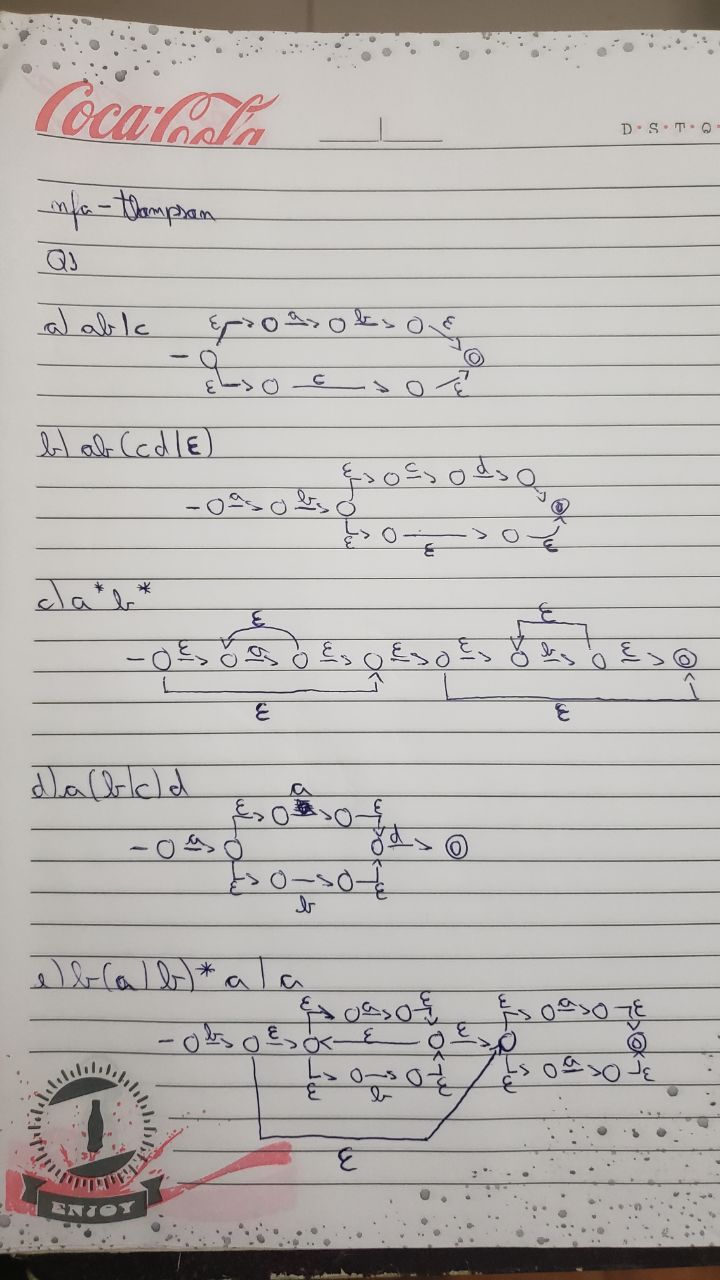 Coca-Cola
D·S·T·Q
nfa - Thompson
Q1
a) ab|c
ε a b ε
ε c ε
b) ab(cd|ε)
ε c d
a b
ε ε ε
c) a*b*
ε ε
ε a ε ε ε b ε
ε ε
d) a(b|c)d
a
ε ε
a d
ε ε
b
e) b(a|b)*a|a
ε a ε ε a ε
b ε ε ε
ε b ε ε a ε
ε
ENJOY